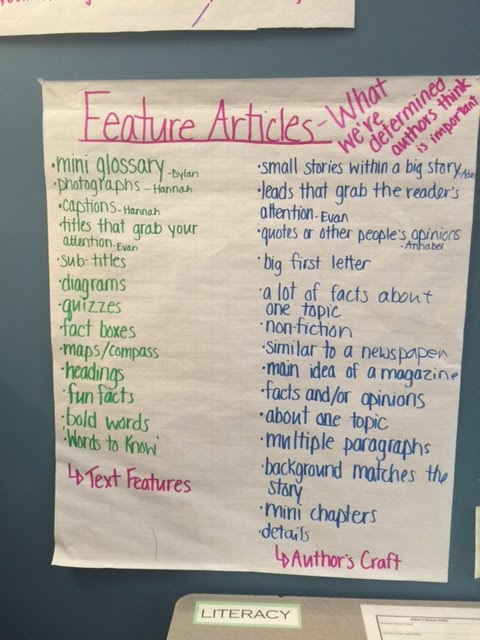 Feature Articles-
What
we're
determined
authors think
is important
·mini glossary -Dylan
·photographs - Hannah
·captions - Hannah
·titles that grab your
attention - Evan
·sub-titles
·diagrams
·quizzes
·fact boxes
·maps/compass
·headings
·fun facts
·bold words
·'Words to Know'
↳Text Features
·small stories within a big story
·leads that grab the reader's
attention - Evan
·quotes or other people's opinions
·big first letter
·a lot of facts about
one topic
·non-fiction
·similar to a newspaper
·main idea of a magazine
·facts and/or opinions
·about one topic
·multiple paragraphs
·background matches the
story
·mini chapters
·details
↳Author's Craft
LITERACY